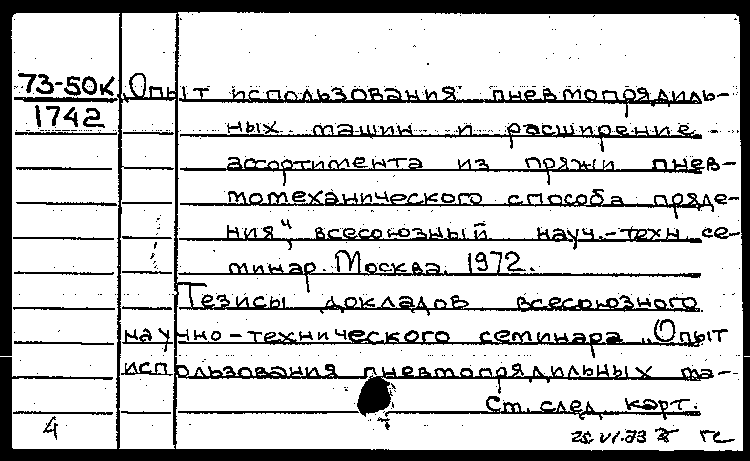 73-50к „Опыт использования пневмопрядиль-
1742
ных машин и расширение
ассортимента из пряжи пнев-
момеханического способа пряде-
ния“, всесоюзный науч.-техн. се-
минар. Москва. 1972.
Тезисы докладов всесоюзного
научно-технического семинара „Опыт
использования пневмопрядильных ма-
Ст. след. карт.
4